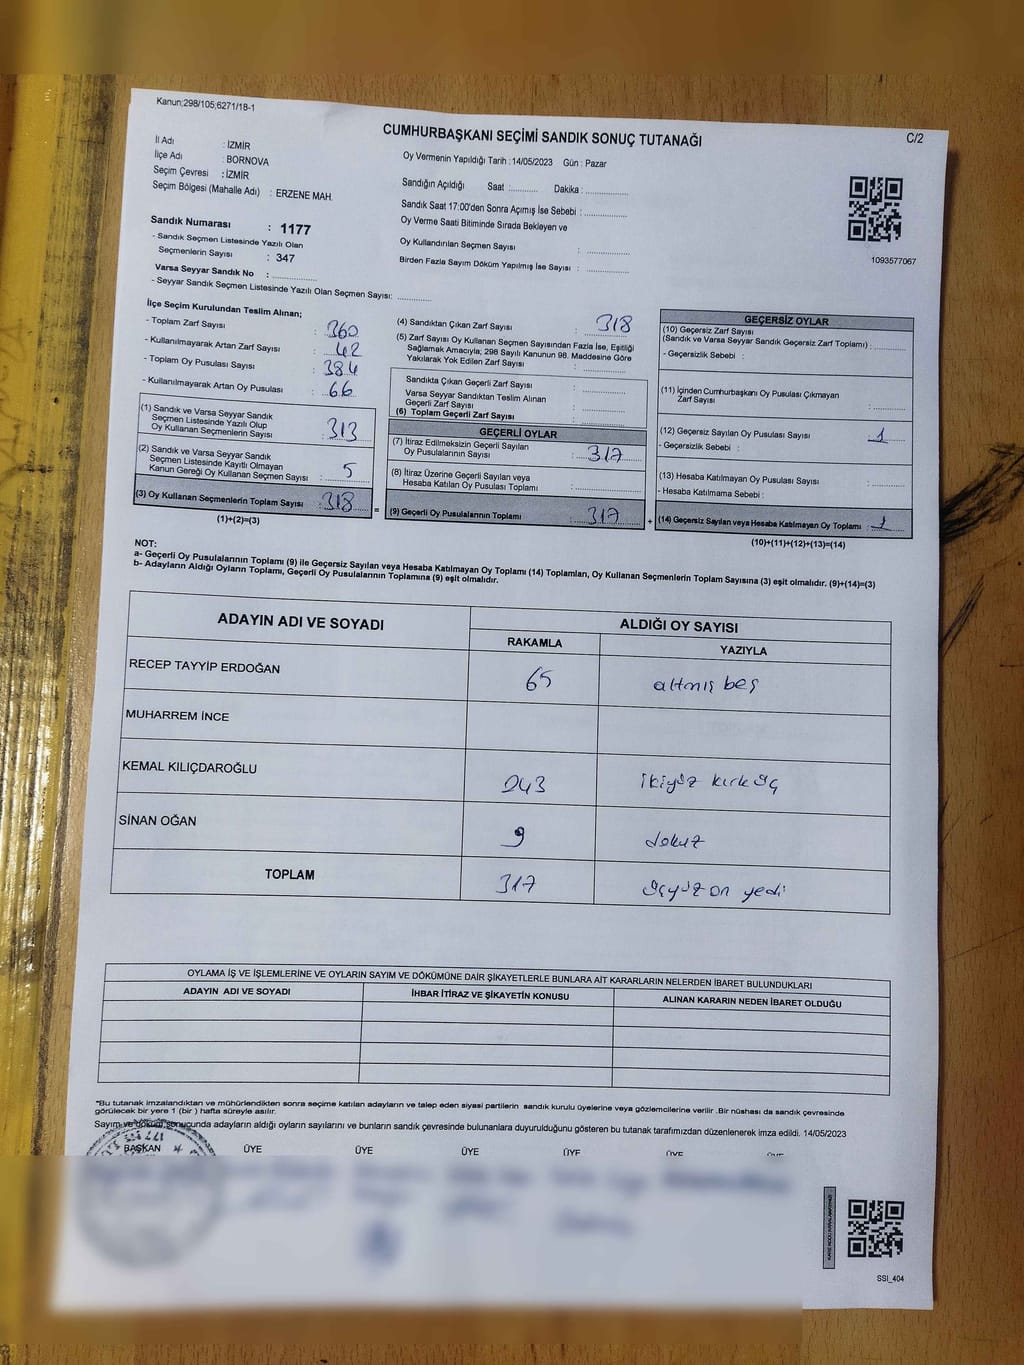 Kanun;298/105;6271/18-1
C/2
CUMHURBAŞKANI SEÇİMİ SANDIK SONUÇ TUTANAĞI
İl Adı : İZMİR
İlçe Adı : BORNOVA
Seçim Çevresi : İZMİR
Seçim Bölgesi (Mahalle Adı) : ERZENE MAH.
Oy Vermenin Yapıldığı Tarih :14/05/2023 Gün : Pazar
Sandığın Açıldığı Saat :........... Dakika :..................
Sandık Saat 17:00'den Sonra Açımış İse Sebebi :..................
Oy Verme Saati Bitiminde Sırada Bekleyen ve
Oy Kullandırılan Seçmen Sayısı : ..................
Birden Fazla Sayım Döküm Yapılmış İse Sayısı : ..................
1093577067
Sandık Numarası : 1177
- Sandık Seçmen Listesinde Yazılı Olan
Seçmenlerin Sayısı : 347
Varsa Seyyar Sandık No : ..................
- Seyyar Sandık Seçmen Listesinde Yazılı Olan Seçmen Sayısı: ..............
İlçe Seçim Kurulundan Teslim Alınan;
- Toplam Zarf Sayısı : 360
- Kullanılmayarak Artan Zarf Sayısı : 42
- Toplam Oy Pusulası Sayısı : 384
- Kullanılmayarak Artan Oy Pusulası : 66
(1) Sandık ve Varsa Seyyar Sandık
Seçmen Listesinde Yazılı Olup
Oy Kullanan Seçmenlerin Sayısı : 313
(2) Sandık ve Varsa Seyyar Sandık
Seçmen Listesinde Kayıtlı Olmayan
Kanun Gereği Oy Kullanan Seçmen Sayısı : 5
(3) Oy Kullanan Seçmenlerin Toplam Sayısı : 318
(1)+(2)=(3)
=
(4) Sandıktan Çıkan Zarf Sayısı : 318
(5) Zarf Sayısı Oy Kullanan Seçmen Sayısından Fazla İse, Eşitliği
Sağlamak Amacıyla; 298 Sayılı Kanunun 98. Maddesine Göre
Yakılarak Yok Edilen Zarf Sayısı : ..................
Sandıkta Çıkan Geçerli Zarf Sayısı : ..................
Varsa Seyyar Sandıktan Teslim Alınan
Geçerli Zarf Sayısı : ..................
(6) Toplam Geçerli Zarf Sayısı : ..................
GEÇERLİ OYLAR
(7) İtiraz Edilmeksizin Geçerli Sayılan
Oy Pusulalarının Sayısı : 317
(8) İtiraz Üzerine Geçerli Sayılan veya
Hesaba Katılan Oy Pusulası Toplamı : ..................
(9) Geçerli Oy Pusulalarının Toplamı : 317
+
GEÇERSİZ OYLAR
(10) Geçersiz Zarf Sayısı
(Sandık ve Varsa Seyyar Sandık Geçersiz Zarf Toplamı) : ............
- Geçersizlik Sebebi :
(11) İçinden Cumhurbaşkanı Oy Pusulası Çıkmayan
Zarf Sayısı : ............
(12) Geçersiz Sayılan Oy Pusulası Sayısı : 1
- Geçersizlik Sebebi :
(13) Hesaba Katılmayan Oy Pusulası Sayısı : ............
- Hesaba Katılmama Sebebi :
(14) Geçersiz Sayılan veya Hesaba Katılmayan Oy Toplamı : 1
(10)+(11)+(12)+(13)=(14)
NOT:
a- Geçerli Oy Pusulalarının Toplamı (9) ile Geçersiz Sayılan veya Hesaba Katılmayan Oy Toplamı (14) Toplamları, Oy Kullanan Seçmenlerin Toplam Sayısına (3) eşit olmalıdır. (9)+(14)=(3)
b- Adayların Aldığı Oyların Toplamı, Geçerli Oy Pusulalarının Toplamına (9) eşit olmalıdır.
ADAYIN ADI VE SOYADI ALDIĞI OY SAYISI
RAKAMLA YAZIYLA
RECEP TAYYİP ERDOĞAN 65 altmış beş
MUHARREM İNCE
KEMAL KILIÇDAROĞLU 243 ikiyüz kırk üç
SİNAN OĞAN 9 dokuz
TOPLAM 317 üçyüz on yedi
OYLAMA İŞ VE İŞLEMLERİNE VE OYLARIN SAYIM VE DÖKÜMÜNE DAİR ŞİKAYETLERLE BUNLARA AİT KARARLARIN NELERDEN İBARET BULUNDUKLARI
ADAYIN ADI VE SOYADI İHBAR İTİRAZ VE ŞİKAYETİN KONUSU ALINAN KARARIN NEDEN İBARET OLDUĞU
"Bu tutanak imzalandıktan ve mühürlendikten sonra seçime katılan adayların ve talep eden siyasi partilerin sandık kurulu üyelerine veya gözlemcilerine verilir .Bir nüshası da sandık çevresinde
görülecek bir yere 1 (bir ) hafta süreyle asılır.
Sayım ve döküm sonucunda adayların aldığı oyların sayılarını ve bunların sandık çevresinde bulunanlara duyurulduğunu gösteren bu tutanak tarafımızdan düzenlenerek imza edildi. 14/05/2023
BAŞKAN ÜYE ÜYE ÜYE ÜYE ÜYE ÜYE
SSI_404